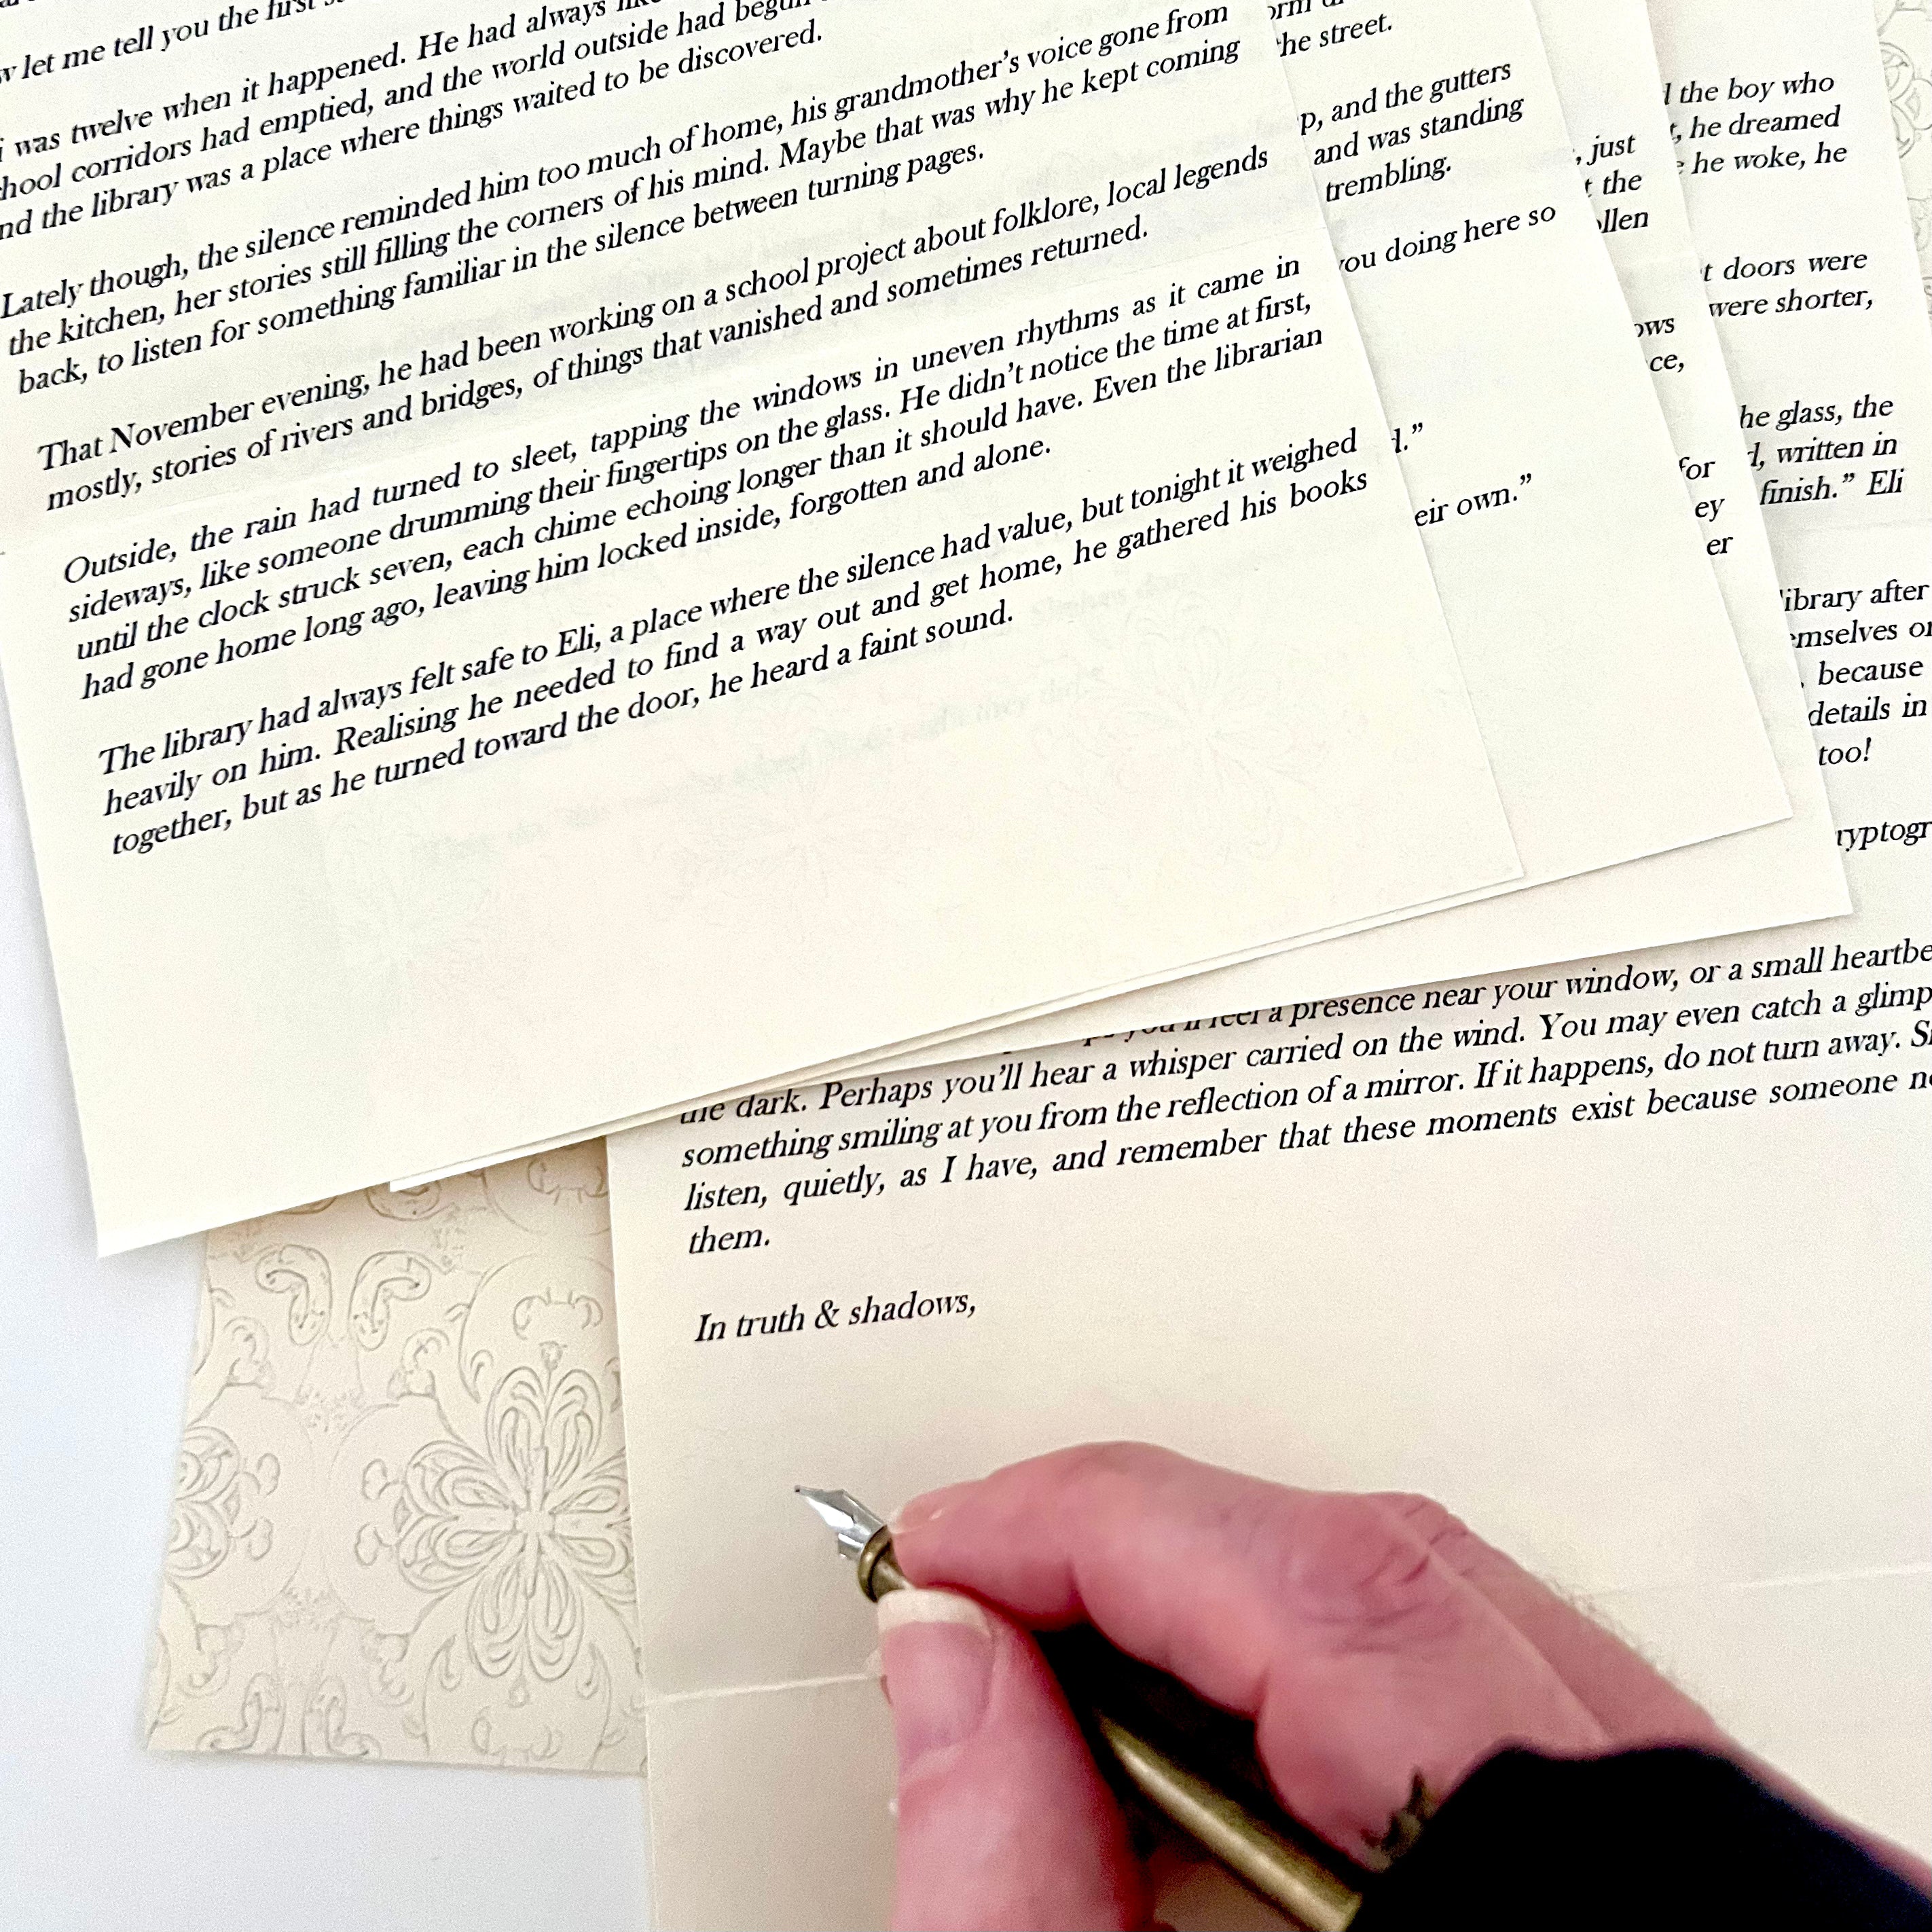 let me tell you the first
was twelve when it happened. He had always
corridors had emptied, and the world outside had begun
the library was a place where things waited to be discovered.
Lately though, the silence reminded him too much of home, his grandmother's voice gone from
the kitchen, her stories still filling the corners of his mind. Maybe that was why he kept coming
back, to listen for something familiar in the silence between turning pages.
That November evening, he had been working on a school project about folklore, local legends
mostly, stories of rivers and bridges, of things that vanished and sometimes returned.
Outside, the rain had turned to sleet, tapping the windows in uneven rhythms as it came in
sideways, like someone drumming their fingertips on the glass. He didn't notice the time at first,
until the clock struck seven, each chime echoing longer than it should have. Even the librarian
had gone home long ago, leaving him locked inside, forgotten and alone.
The library had always felt safe to Eli, a place where the silence had value, but tonight it weighed
heavily on him. Realising he needed to find a way out and get home, he gathered his books
together, but as he turned toward the door, he heard a faint sound.
the street.
and the gutters
and was standing
trembling.
you doing here so
eir own.”
just
the
for
ey
er
the boy who
he dreamed
he woke, he
doors were
were shorter,
the glass, the
written in
finish.” Eli
library after
because
details in
too!
you'll feel a presence near your window, or a small
the dark. Perhaps you'll hear a whisper carried on the wind. You may even catch a
something smiling at you from the reflection of a mirror. If it happens, do not turn away.
listen, quietly, as I have, and remember that these moments exist because someone
them.
In truth & shadows,